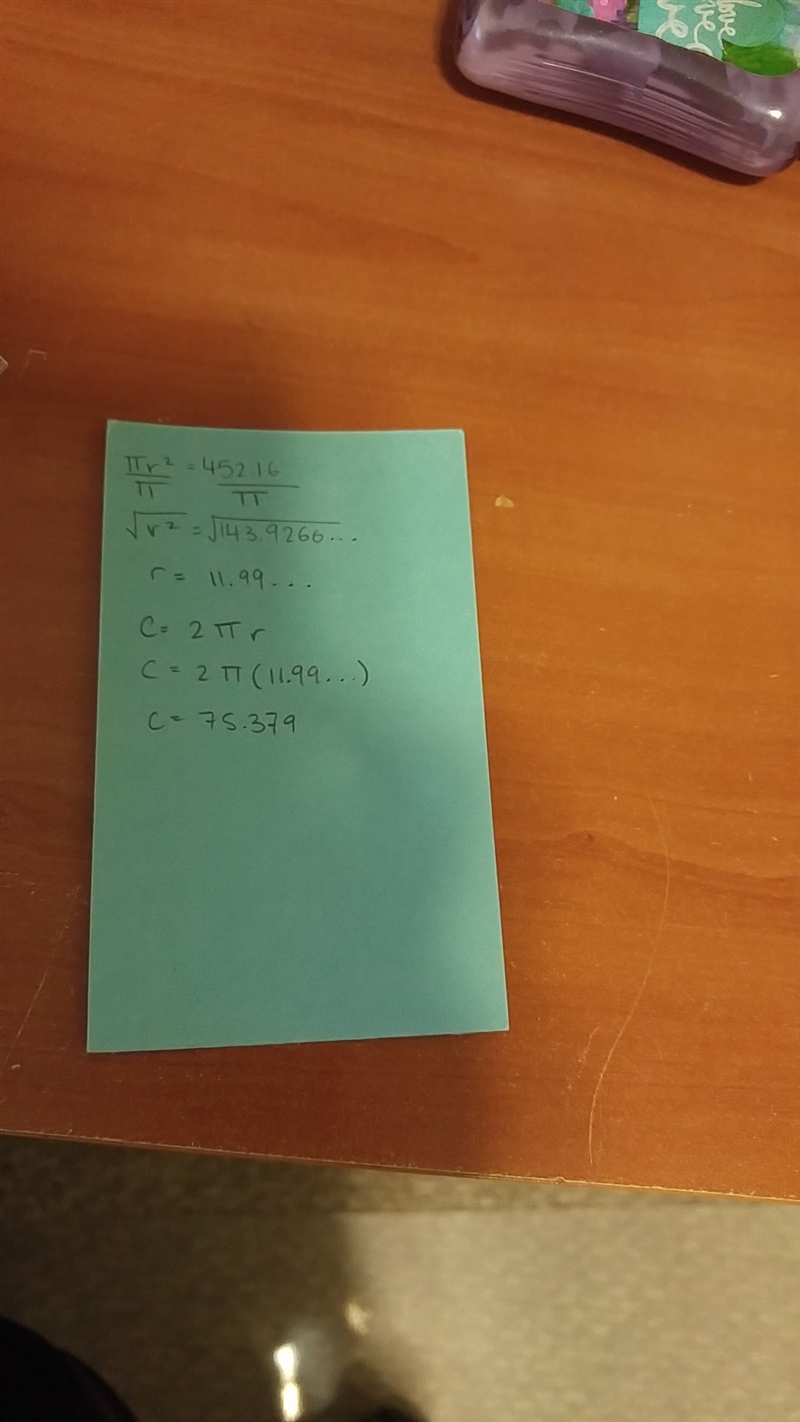 love
πr² = 452.16
π π
√r² = √143.9266...
r = 11.99...
C = 2πr
C = 2π(11.99...)
C = 75.379